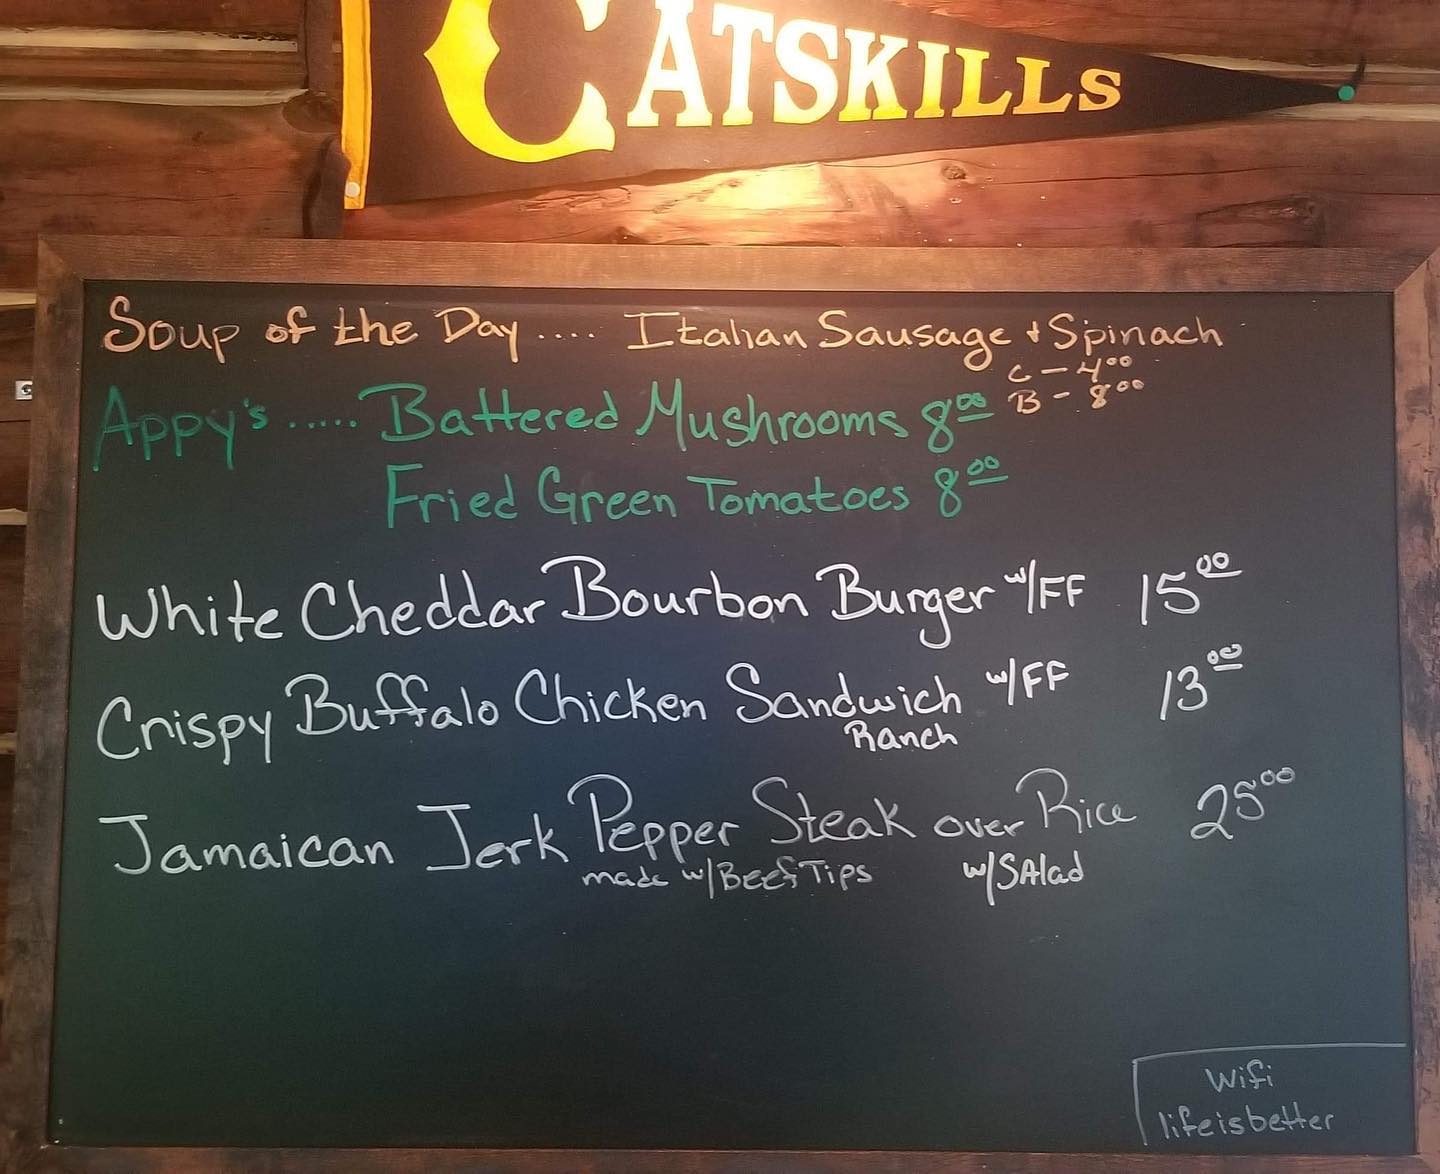 CATSKILLS
Soup of the Day .... Italian Sausage + Spinach
C - 4.00
B - 8.00
Appy's ..... Battered Mushrooms 8.00
Fried Green Tomatoes 8.00
White Cheddar Bourbon Burger w/FF 15.00
Crispy Buffalo Chicken Sandwich w/FF 13.00
Ranch
Jamaican Jerk Pepper Steak over Rice 25.00
made w/Beef Tips w/SAlad
Wifi
lifeisbetter